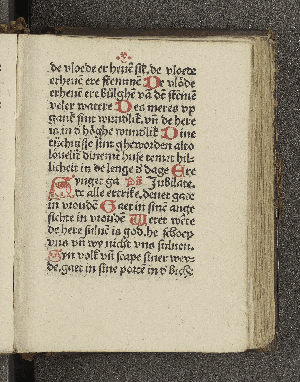 de vloede er heuē sik. de vloede
erheuē ere stemmē De vlode
erheuē ere bulghē vā dē stēmē
veler watere Des meres vp
gank sint wundlik. vn̄ de here
is in d hoghe wundlik Dine
tuchnisse sint ghewordē alto
louelik dineme huse temet hil-
licheit in de lenge d dage Ere
ps Jubilate
alle ertrike. denet gade
in vroudē Gaet in sinē ange
sichte in vroudē Wetet wēte
de here sulue is god. he schop
vns vn̄ wy nicht vns suluen.
Syn volk vn̄ scape siner wey-
de. gaet in sine portē in d bicht